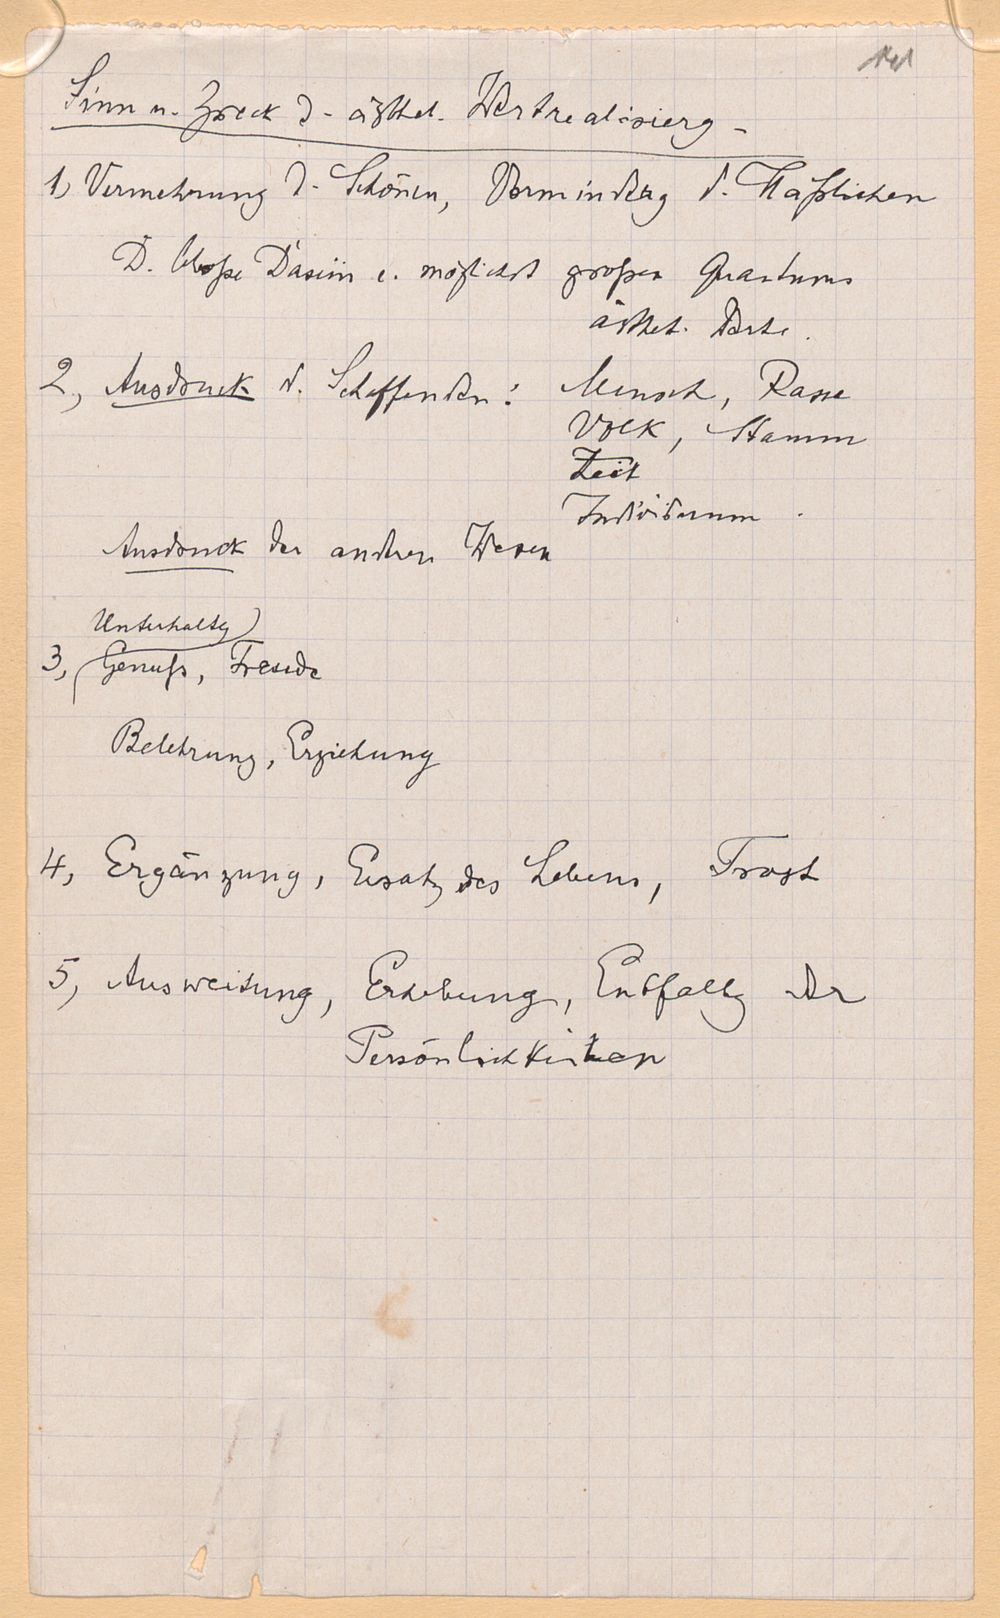 Sinn u. Zweck d. ästhet. Wertrealisierg -
1, Vermehrung d. Schönen, Verminderg d. Häßlichen
D. bloße Dasein e. möglichst großen Quantums
ästhet. Werte.
2, Ausdruck d. Schaffenden: Mensch, Rasse
Volk, Stamm
Zeit
Individuum.
Ausdruck der anderen Wesen
Unterhaltg
3, Genuß, Freude
Belehrung, Erziehung
4, Ergänzung, Ersatz des Lebens, Trost
5, Ausweitung, Erhebung, Entfaltg der
Persönlichkeiten